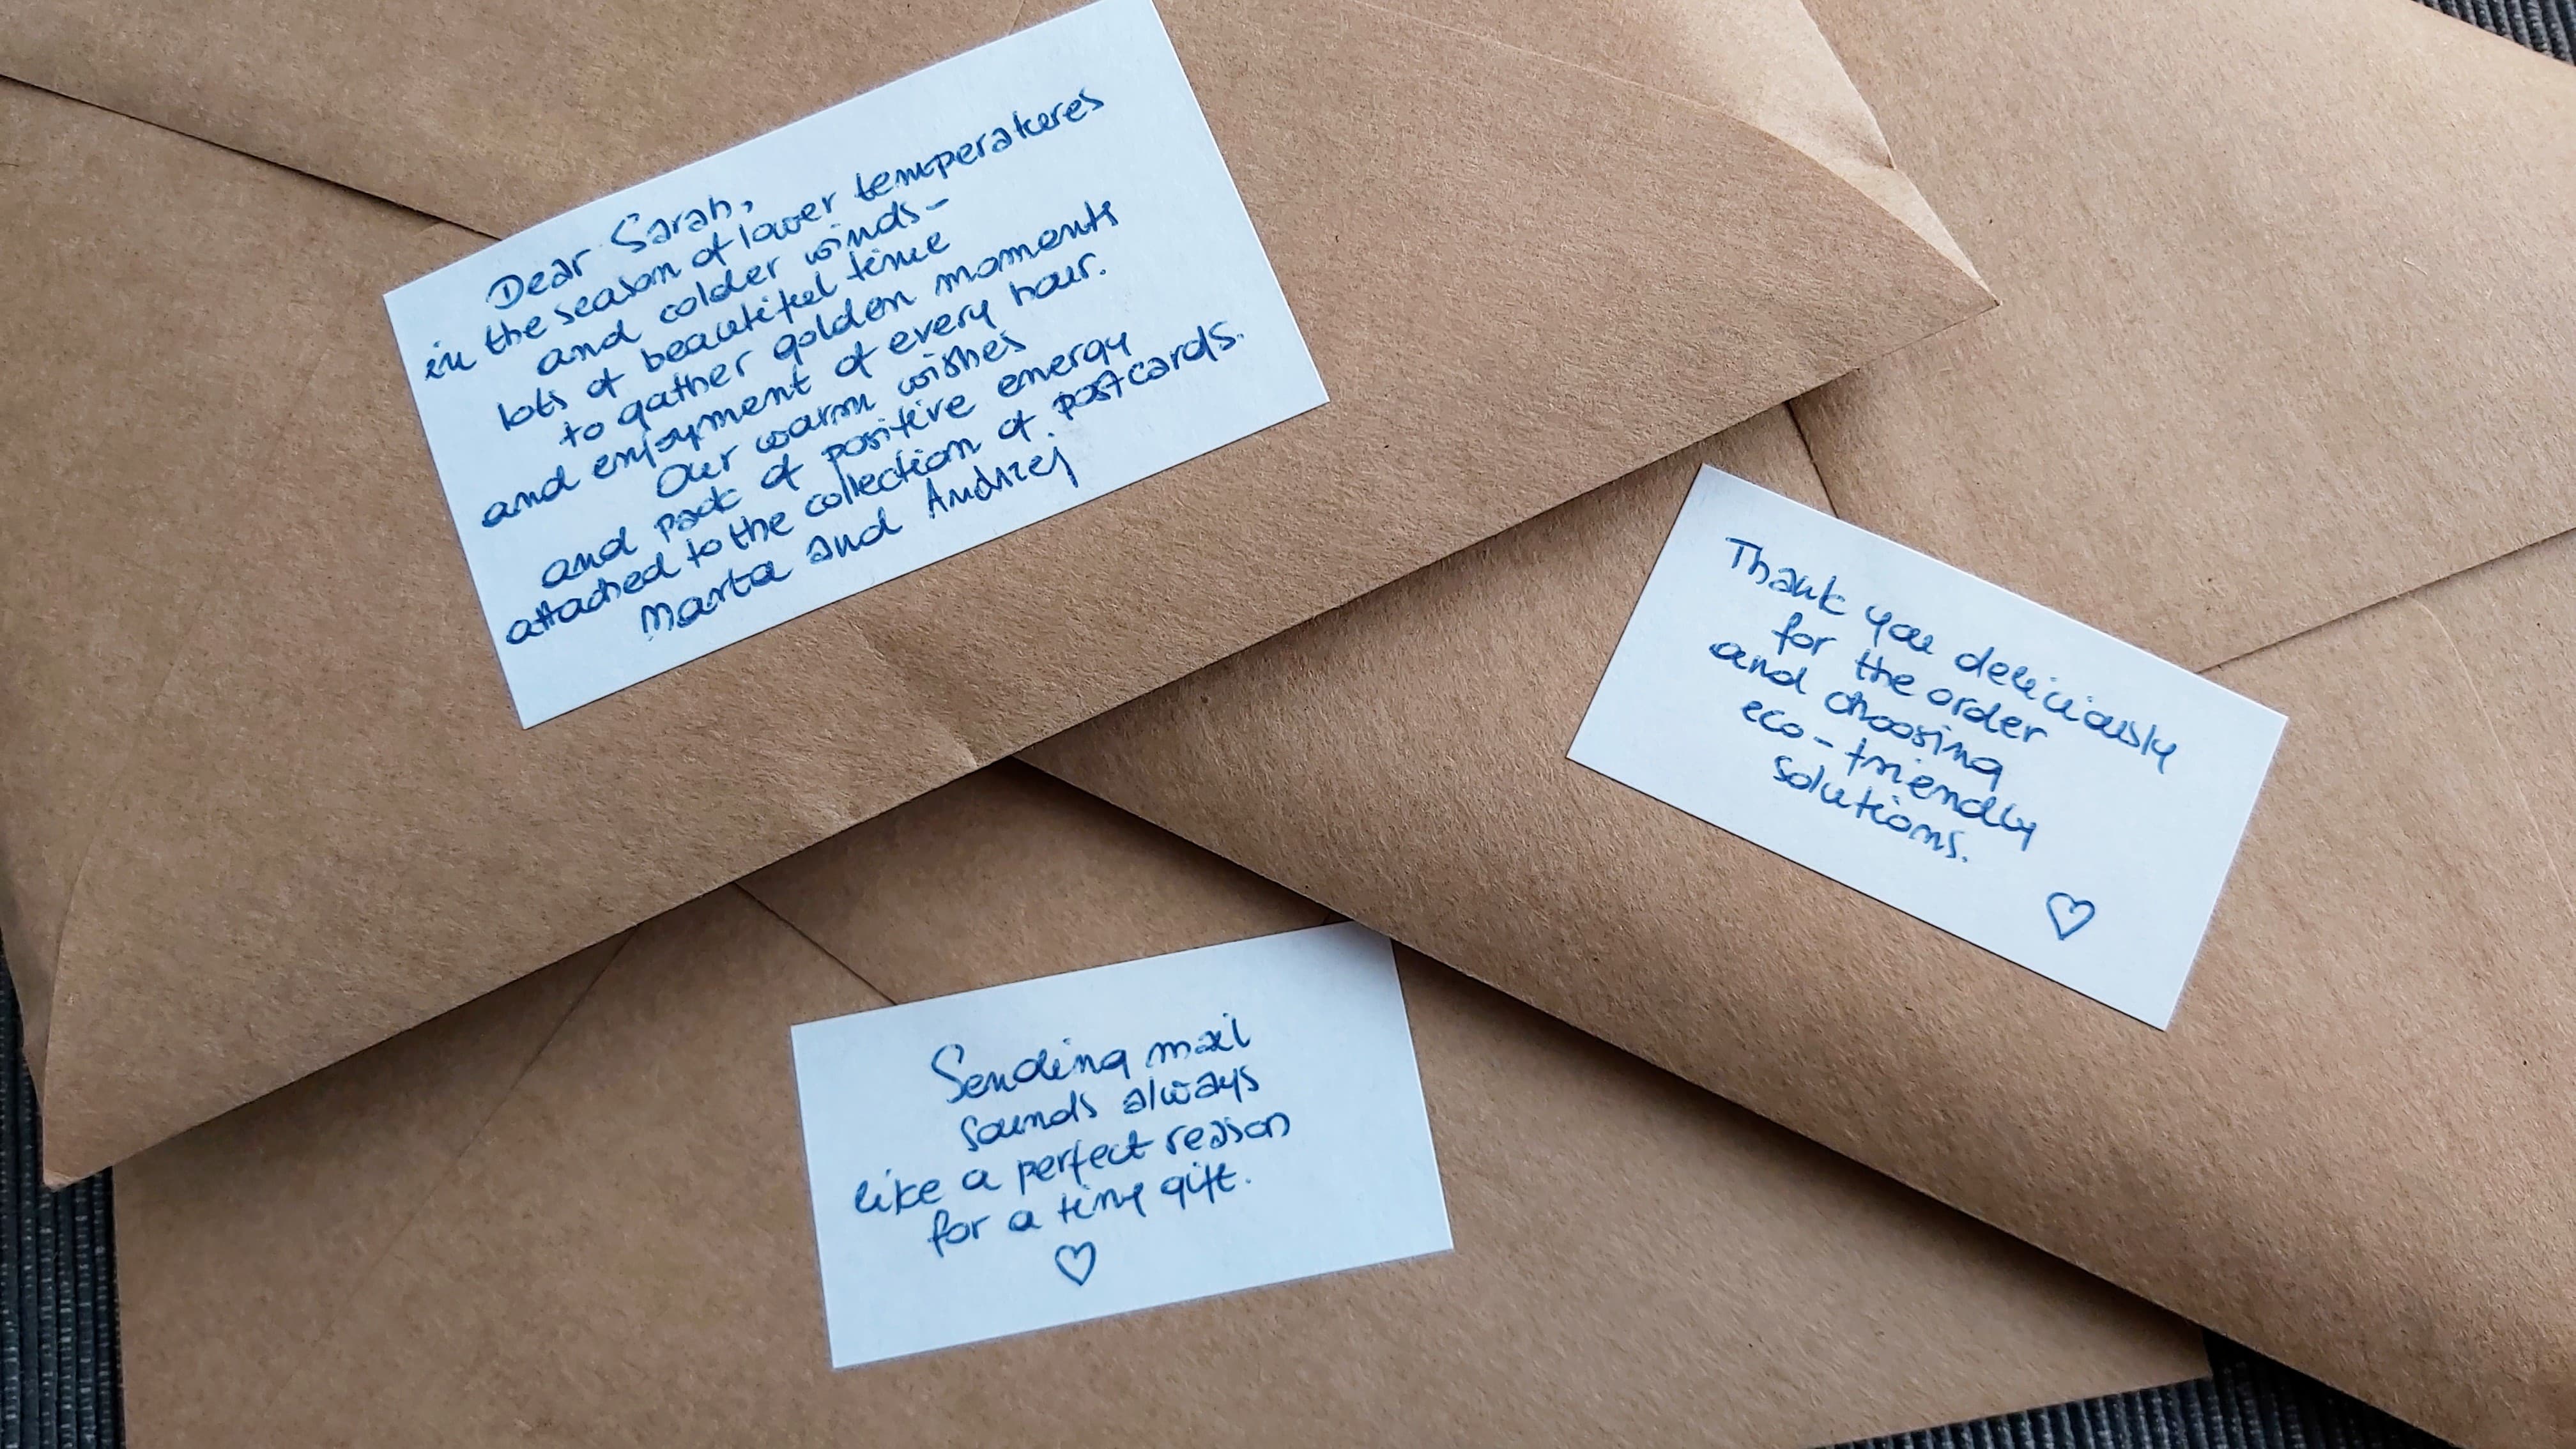 Dear Sarah,
in the season of lower temperatures
and colder winds-
lots of beautiful time
to gather golden moments
and enjoyment of every hour.
Our warm wishes
and pack of positive energy
attached to the collection of postcards.
Marta and Andrzej
Thank you deliciously
for the order
and choosing
eco-friendly
solutions.
♡
Sending mail
sounds always
like a perfect reason
for a tiny gift.
♡